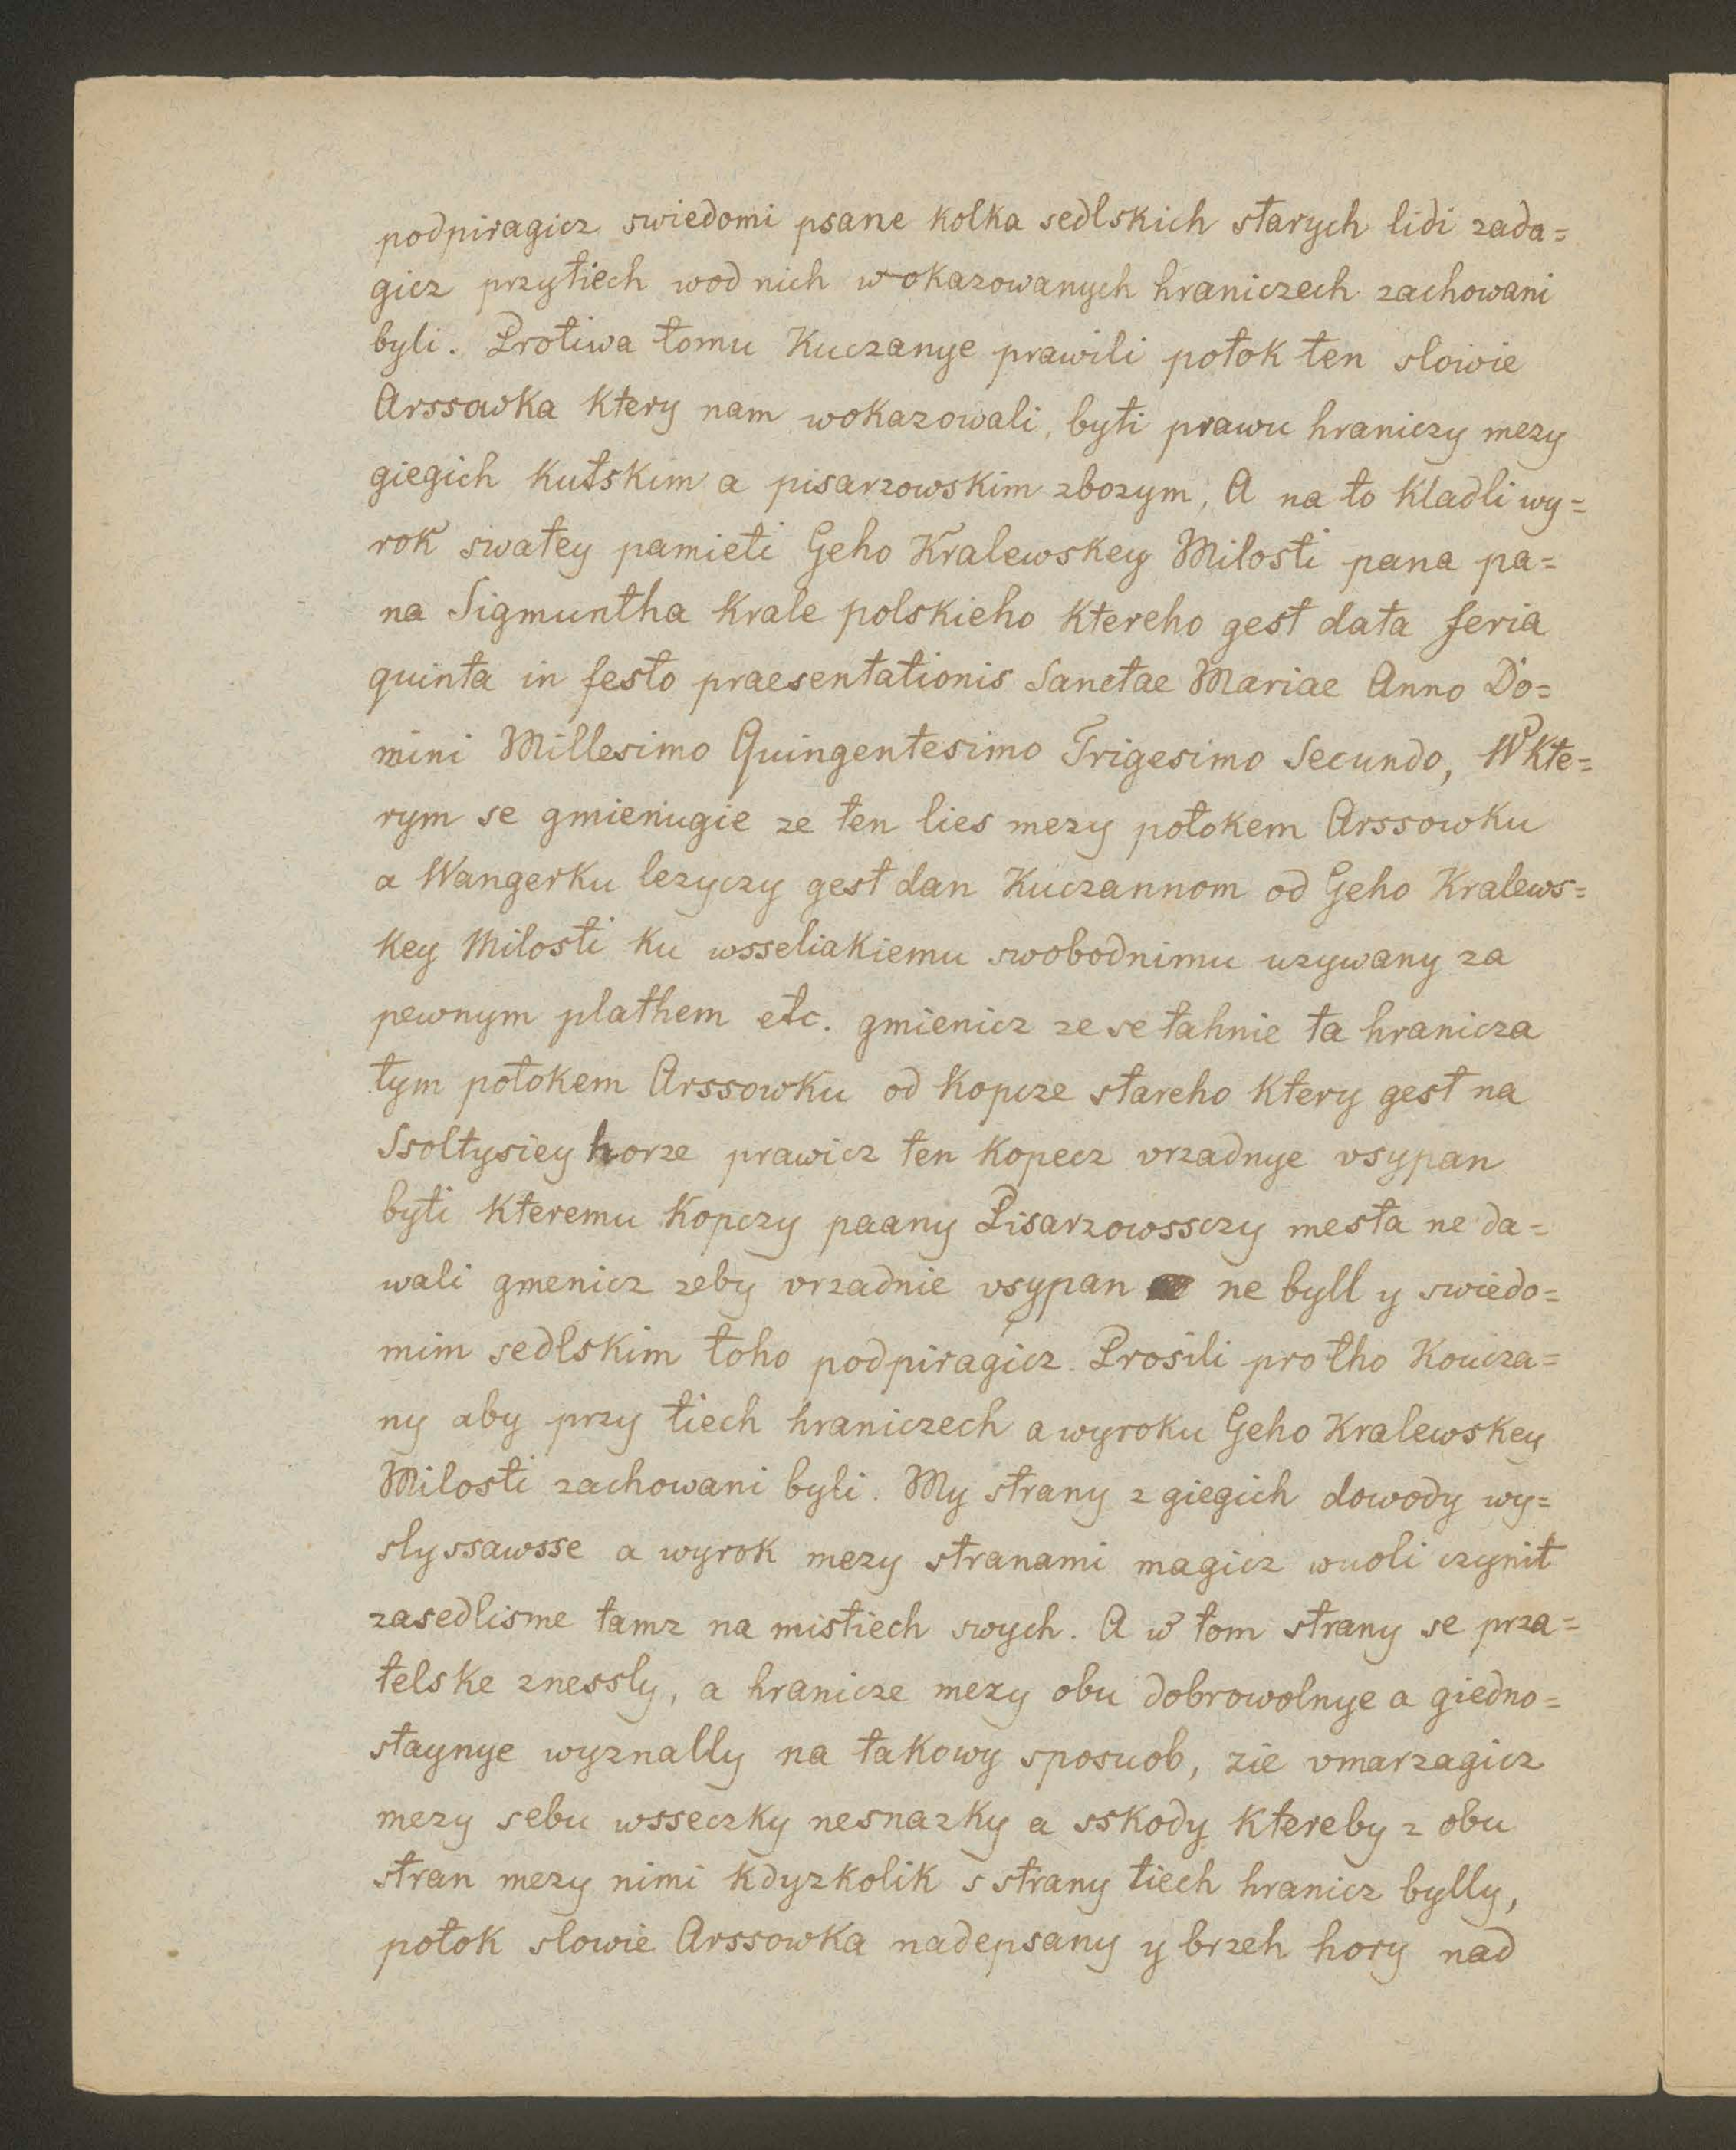 podpiragicz swiedomi psane kolka sedlskich starych lidi zada=
gicz przytiech wod nich wokazowanych hraniczech zachowani
byli. Protiwa tomu Kuczanye prawili potok ten slowie
Arssowka ktery nam wokazowali, byti prawu hraniczy mezy
giegich kutskim a pisarzowskim zbozym, A na to kladli wy=
rok swatey pamieti Geho Kralewskey Milosti pana pa=
na Sigmuntha Krale polskieho ktereho gest data feria
quinta in festo praesentationis Sanctae Mariae Anno Do=
mini Millesimo Quingentesimo Trigesimo Secundo, W kte=
rym se gmienugie ze ten lies mezy potokem Arssowku
a Wangerku lezyczy gest dan Kuczannom od Geho Kralews=
key Milosti ku wsseliakiemu swobodnimu uzywany za
pewnym plathem etc. gmienicz ze se tahnie ta hranicza
tym potokem Arssowku od kopcze stareho ktery gest na
Ssoltysiey horze prawicz ten kopecz vrzadnye vsypan
byti kteremu kopczy paany Pisarzowssczy mesta ne da=
wali gmenicz zeby vrzadnie vsypan ne byll y swiedo=
mim sedlskim toho podpiragicz. Prosili protho Koucza=
ny aby przy tiech hraniczech a wyroku Geho Kralewskey
Milosti zachowani byli. My strany z giegich dowody wy=
slyssawsse a wyrok mezy stranami magicz wuoli czynit
zasedlisme tamz na mistiech swych. A w tom strany se prza=
telske znessly, a hranicze mezy obu dobrowolnye a giedno=
staynye wyznally na takowy sposuob, zie vmarzagicz
mezy sebu wsseczky nesnazky a sskody ktereby z obu
stran mezy nimi kdyzkolik s strany tiech hranicz bylly,
potok slowie Arssowka nadepsany y brzeh hory nad